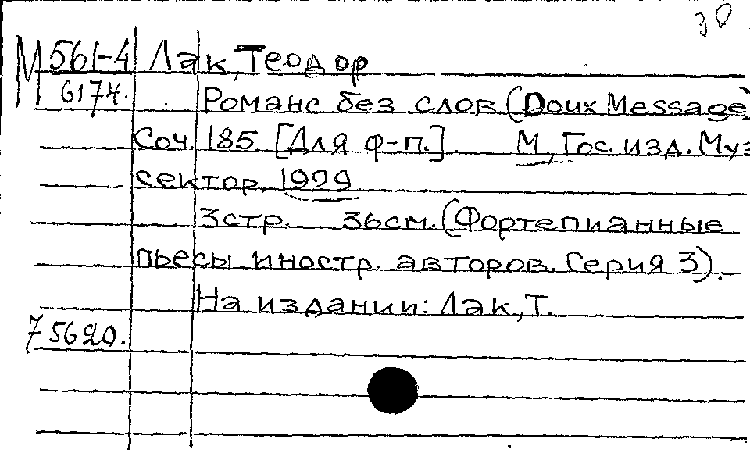 30
М 561-4 Лак, Теодор
6174. Романс без слов (Doux Message)
Соч. 185 [Для ф-п.]. М., Гос. изд. Муз.
сектор, 1929
3 стр. 36 см. (Фортепианные
пьесы иностр. авторов. Серия 3).
На издании: Лак, Т.
75620.